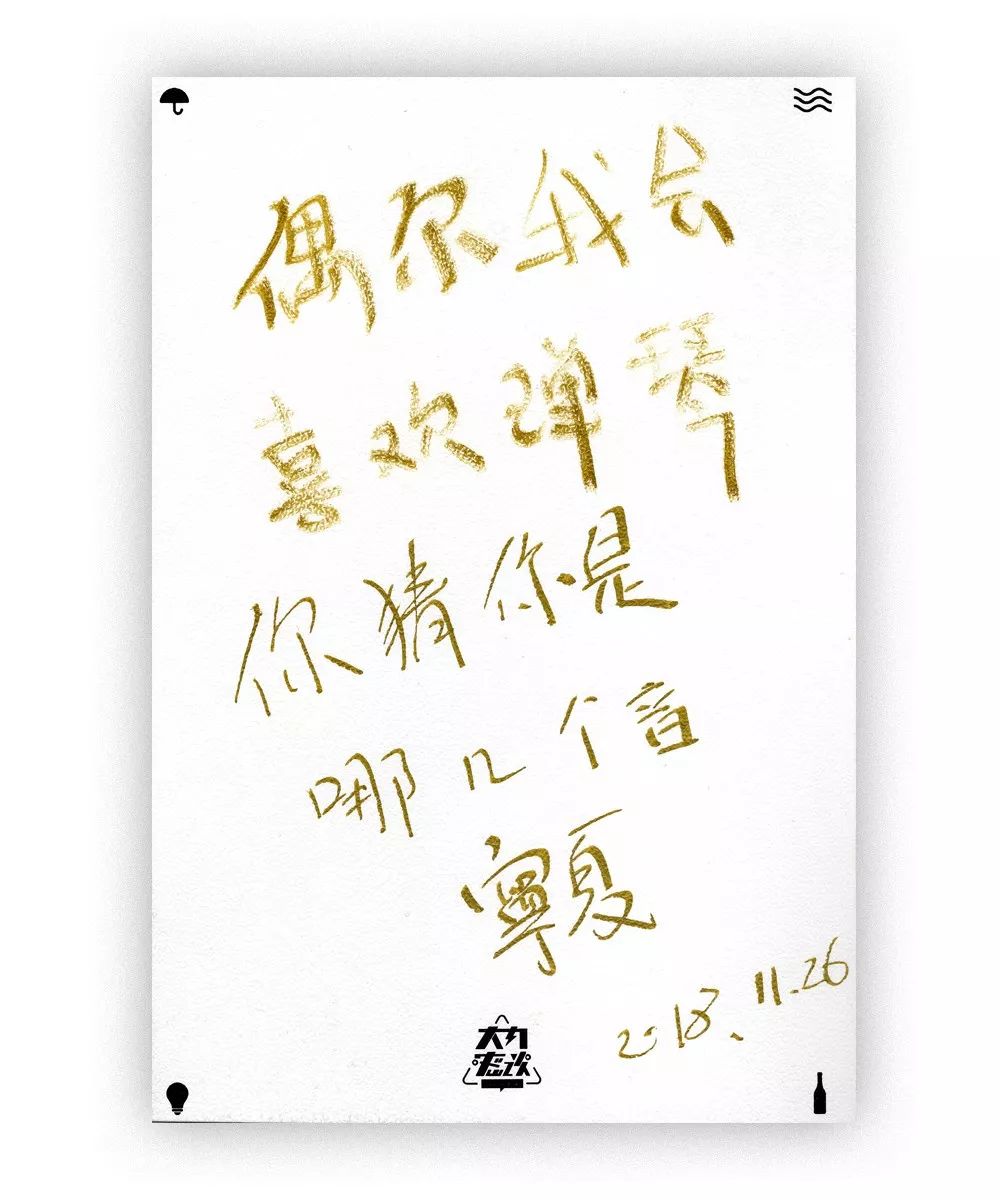 偶尔我会
喜欢弹琴
你猜你是
哪几个音
寧夏
2018.11.26